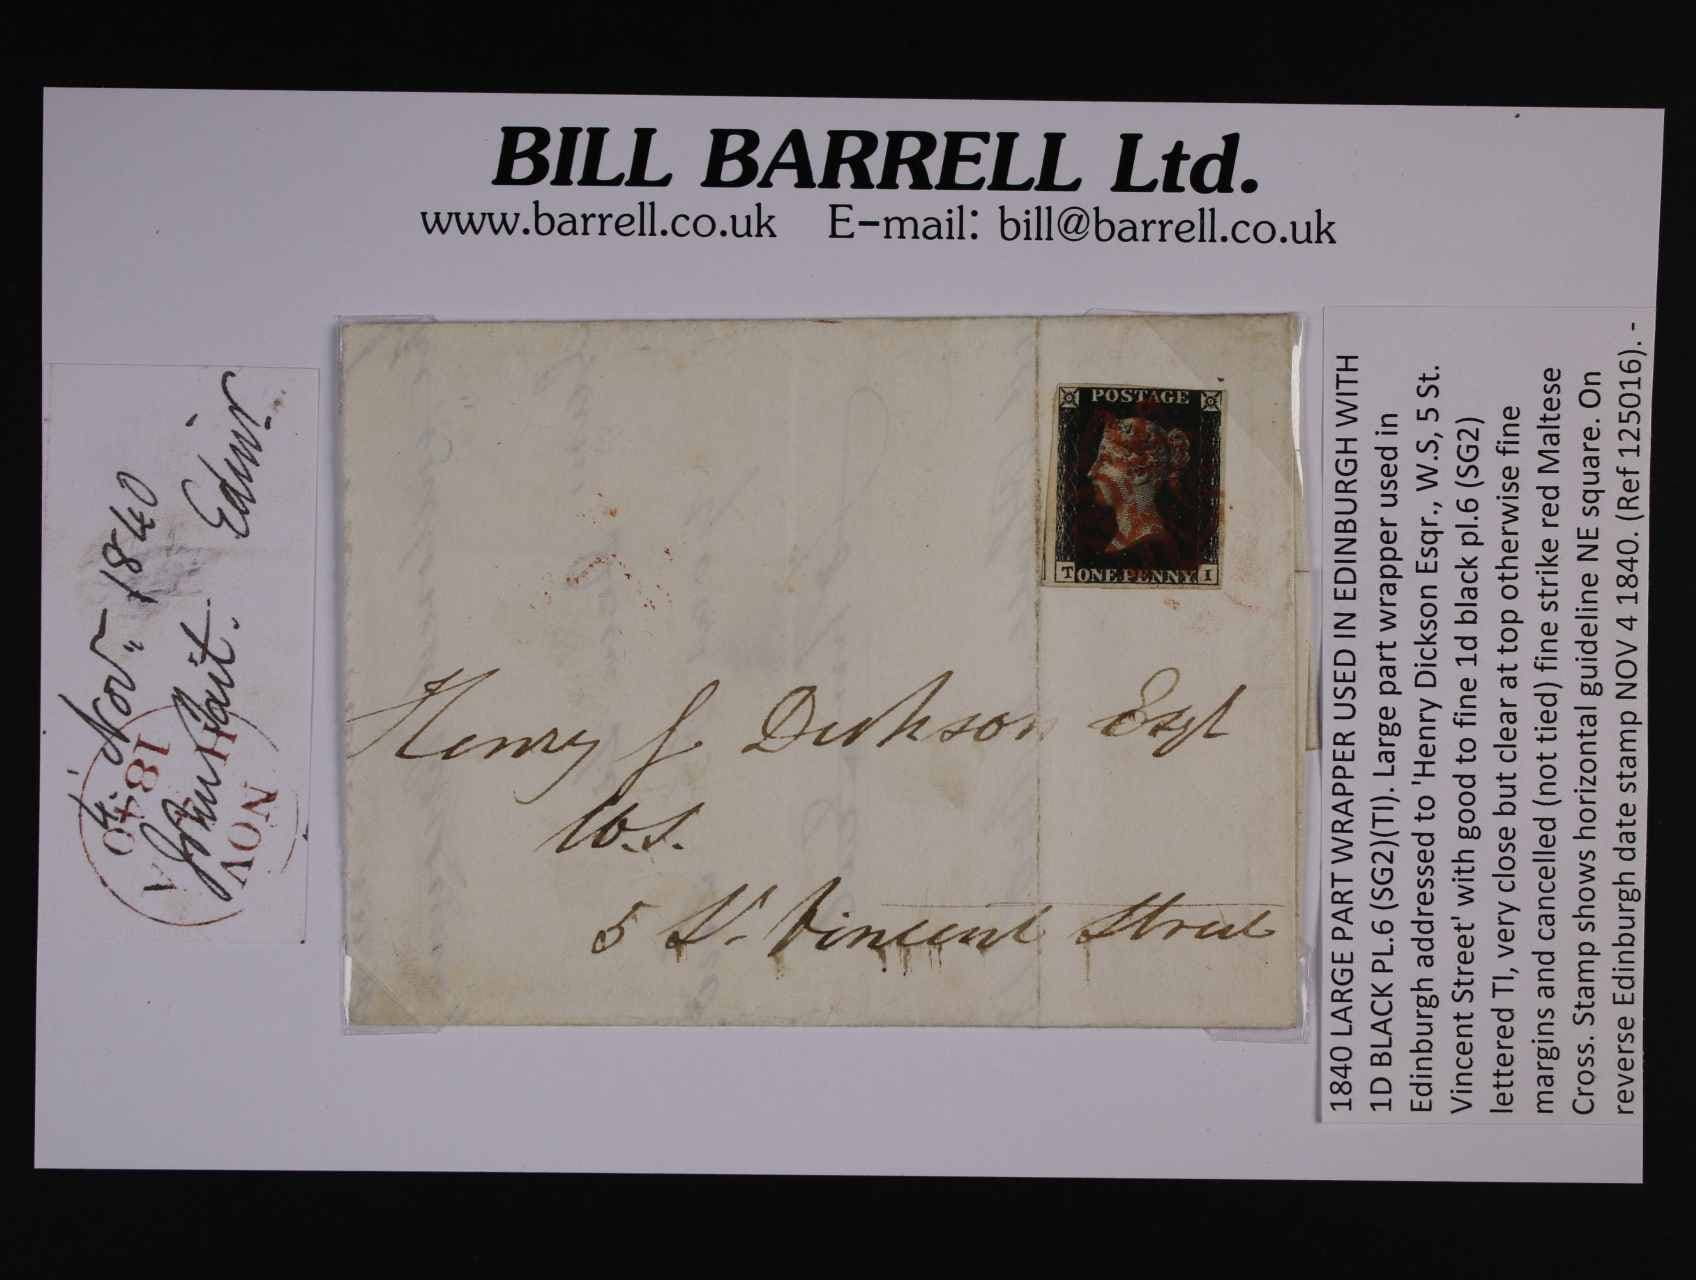 BILL BARRELL Ltd.
www.barrell.co.uk E-mail: bill@barrell.co.uk
4 Nov. 1840
Edinr.
NOV
1840
A
POSTAGE
T ONE PENNY I
Henry J Dickson Esqr
W.S.
5 St. Vincent Street
1840 LARGE PART WRAPPER USED IN EDINBURGH WITH
1D BLACK PL.6 (SG2)(TI). Large part wrapper used in
Edinburgh addressed to 'Henry Dickson Esqr., W.S, 5 St.
Vincent Street' with good to fine 1d black pl.6 (SG2)
lettered TI, very close but clear at top otherwise fine
margins and cancelled (not tied) fine strike red Maltese
Cross. Stamp shows horizontal guideline NE square. On
reverse Edinburgh date stamp NOV 4 1840. (Ref 125016). -